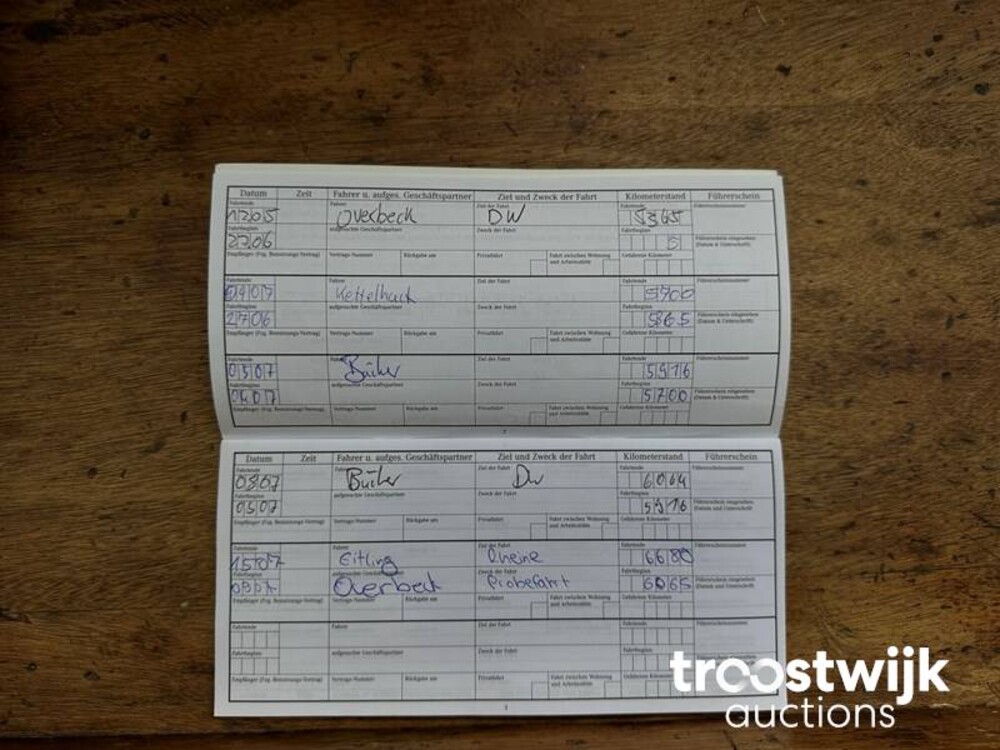 Datum Zeit Fahrer u. aufges. Geschäftspartner Ziel und Zweck der Fahrt Kilometerstand Führerschein
Fahrtende Fahrer Ziel der Fahrt Fahrtende Führerscheinnummer
Overbeck DW 5365
Fahrtbeginn aufgesuchte Geschäftspartner Zweck der Fahrt Fahrtbeginn Führerschein eingesehen
(Datum & Unterschrift)
Empfänger (Fzg. Benutzungs-Vertrag) Vertrags-Nummer Rückgabe am Privatfahrt Fahrt zwischen Wohnung Gefahrene Kilometer
und Arbeitsstätte
Fahrtende Fahrer Ziel der Fahrt Fahrtende Führerscheinnummer
0407 5700
Fahrtbeginn aufgesuchte Geschäftspartner Zweck der Fahrt Fahrtbeginn Führerschein eingesehen
2706 5365 (Datum & Unterschrift)
Empfänger (Fzg. Benutzungs-Vertrag) Vertrags-Nummer Rückgabe am Privatfahrt Fahrt zwischen Wohnung Gefahrene Kilometer
und Arbeitsstätte
Fahrtende Fahrer Ziel der Fahrt Fahrtende Führerscheinnummer
0507 5916
Fahrtbeginn aufgesuchte Geschäftspartner Zweck der Fahrt Fahrtbeginn Führerschein eingesehen
0407 5700 (Datum & Unterschrift)
Empfänger (Fzg. Benutzungs-Vertrag) Vertrags-Nummer Rückgabe am Privatfahrt Fahrt zwischen Wohnung Gefahrene Kilometer
und Arbeitsstätte
Datum Zeit Fahrer u. aufges. Geschäftspartner Ziel und Zweck der Fahrt Kilometerstand Führerschein
Fahrtende Fahrer Ziel der Fahrt Fahrtende Führerscheinnummer
0807 DW 6064
Fahrtbeginn aufgesuchte Geschäftspartner Zweck der Fahrt Fahrtbeginn Führerschein eingesehen
0507 5916 (Datum und Unterschrift)
Empfänger (Fzg. Benutzungs-Vertrag) Vertrags-Nummer Rückgabe am Privatfahrt Fahrt zwischen Wohnung Gefahrene Kilometer
und Arbeitsstätte
Fahrtende Fahrer Ziel der Fahrt Fahrtende Führerscheinnummer
1507 Eitling Rheine 6680
Fahrtbeginn Zweck der Fahrt Fahrtbeginn Führerschein eingesehen
Overbeck Probefahrt 6065 (Datum & Unterschrift)
Empfänger (Fzg. Benutzungs-Vertrag) Vertrags-Nummer Rückgabe am Privatfahrt Fahrt zwischen Wohnung Gefahrene Kilometer
und Arbeitsstätte
Fahrtende Fahrer Ziel der Fahrt Fahrtende Führerscheinnummer
Fahrtbeginn aufgesuchte Geschäftspartner Zweck der Fahrt Fahrtbeginn
Empfänger (Fzg. Benutzungs-Vertrag) Vertrags-Nummer Rückgabe am Privatfahrt Fahrt zwischen Wohnung
und Arbeitsstätte
troostwijk
auctions